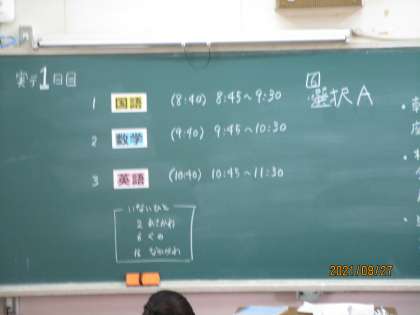 実テ1日目
1 国語 (8:40) 8:45〜9:30
2 数学 (9:40) 9:45〜10:30
3 英語 (10:40) 10:45〜11:30
6 選択A
いないひと
2 あさかわ
6 くの
16 なかがわ
2021/08/27